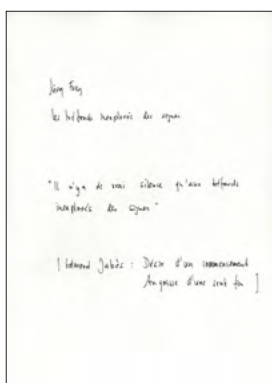 Jürg Frey
les tréfonds inexplorés des signes
"Il n'y a de vrai silence qu'aux tréfonds
inexplorés des signes"
[Edmond Jabès : Désir d'un commencement
Angoisse d'une seule fin ]